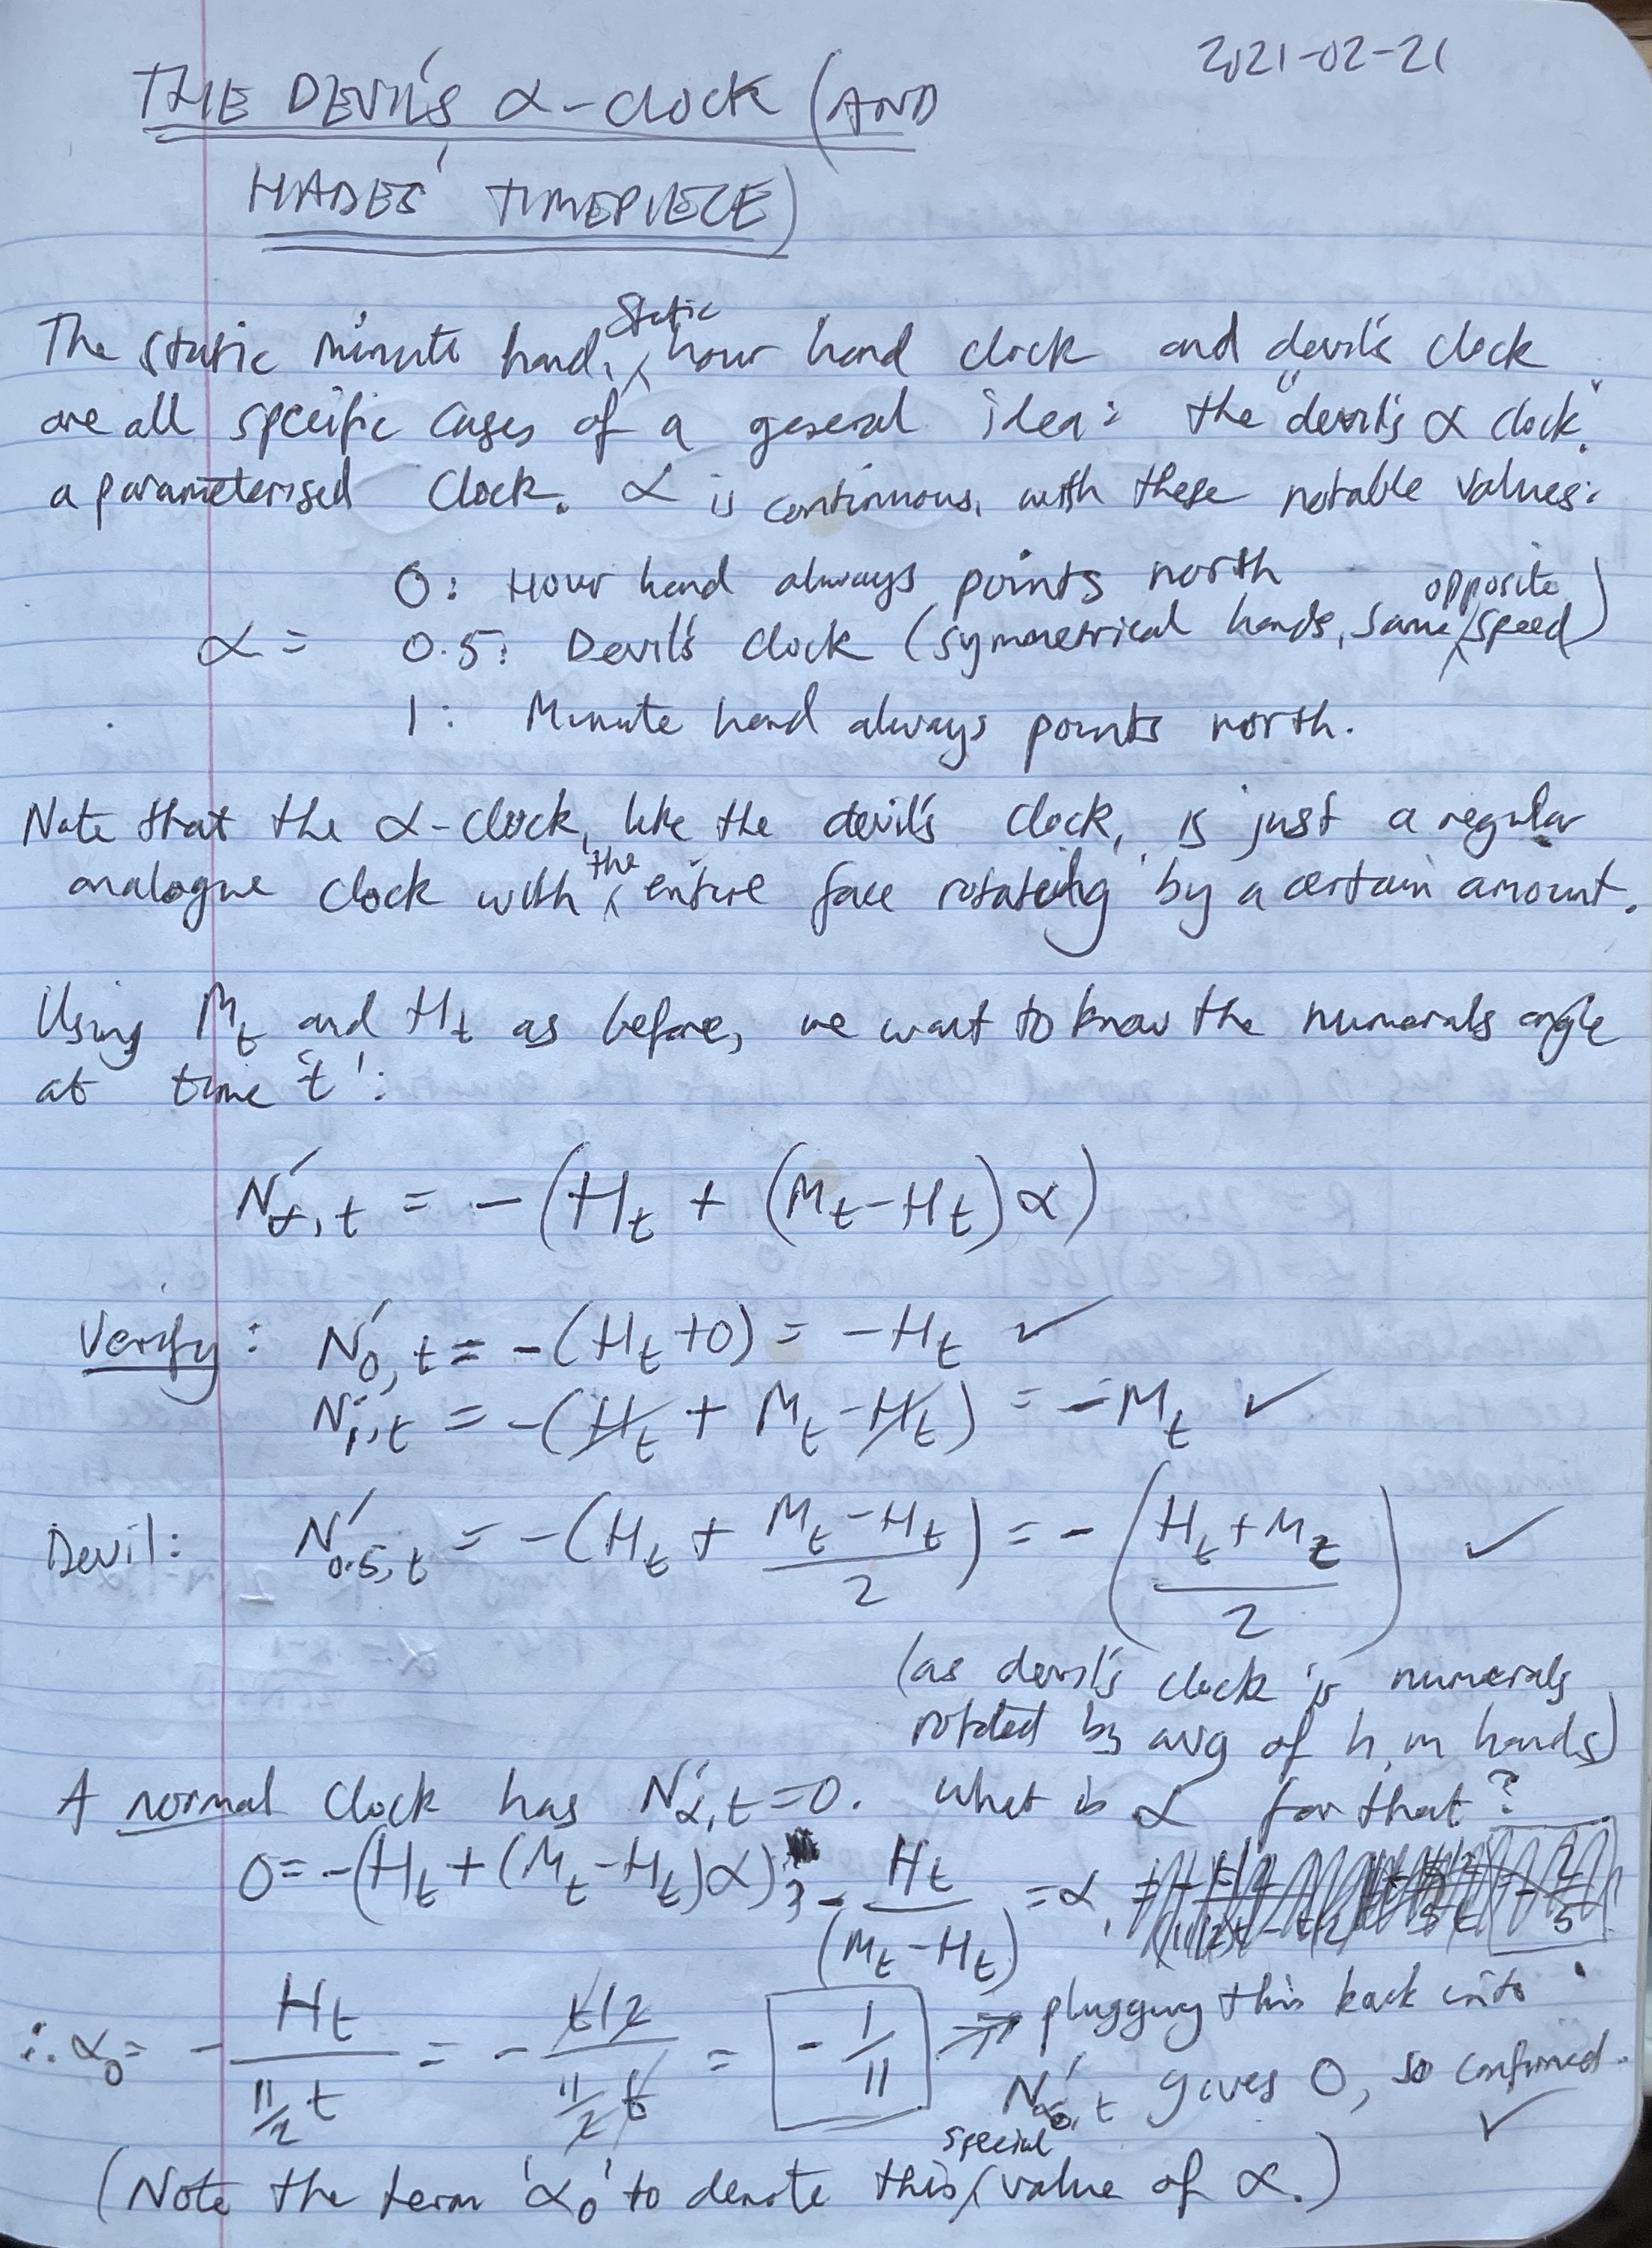 2021-02-21
THE DEVIL'S α-clock (AND
HADES' TIMEPIECE)
The static minute hand, static hour hand clock and devil's clock
are all specific cases of a general idea: the "devil's α clock",
a parameterised clock. α is continuous, with these notable values:
0: Hour hand always points north
α = 0.5: Devil's clock (symmetrical hands, same opposite speed)
1: Minute hand always points north.
Note that the α-clock, like the devil's clock, is just a regular
analogue clock with the entire face rotating by a certain amount.
Using M_t and H_t as before, we want to know the numerals angle
at time 't':
N'_α,t = -(H_t + (M_t-H_t)α)
Verify: N'_0,t = -(H_t+0) = -H_t ✓
N'_1,t = -(H_t + M_t-H_t) = -M_t ✓
Devil: N'_0.5,t = -(H_t + (M_t-H_t)/2) = -((H_t+M_t)/2) ✓
(as devil's clock is numerals
rotated by avg of h, m hands)
A normal clock has N'_α,t=0. What is α for that?
0=-(H_t+(M_t-H_t)α); -H_t/(M_t-H_t) =α,
∴ α_0= -H_t/(11/2 t) = -(t/2)/(11/2 t) = -1/11 → plugging this back into
N'_α0,t gives 0, so confirmed. ✓
(Note the term 'α_0' to denote this special value of α.)